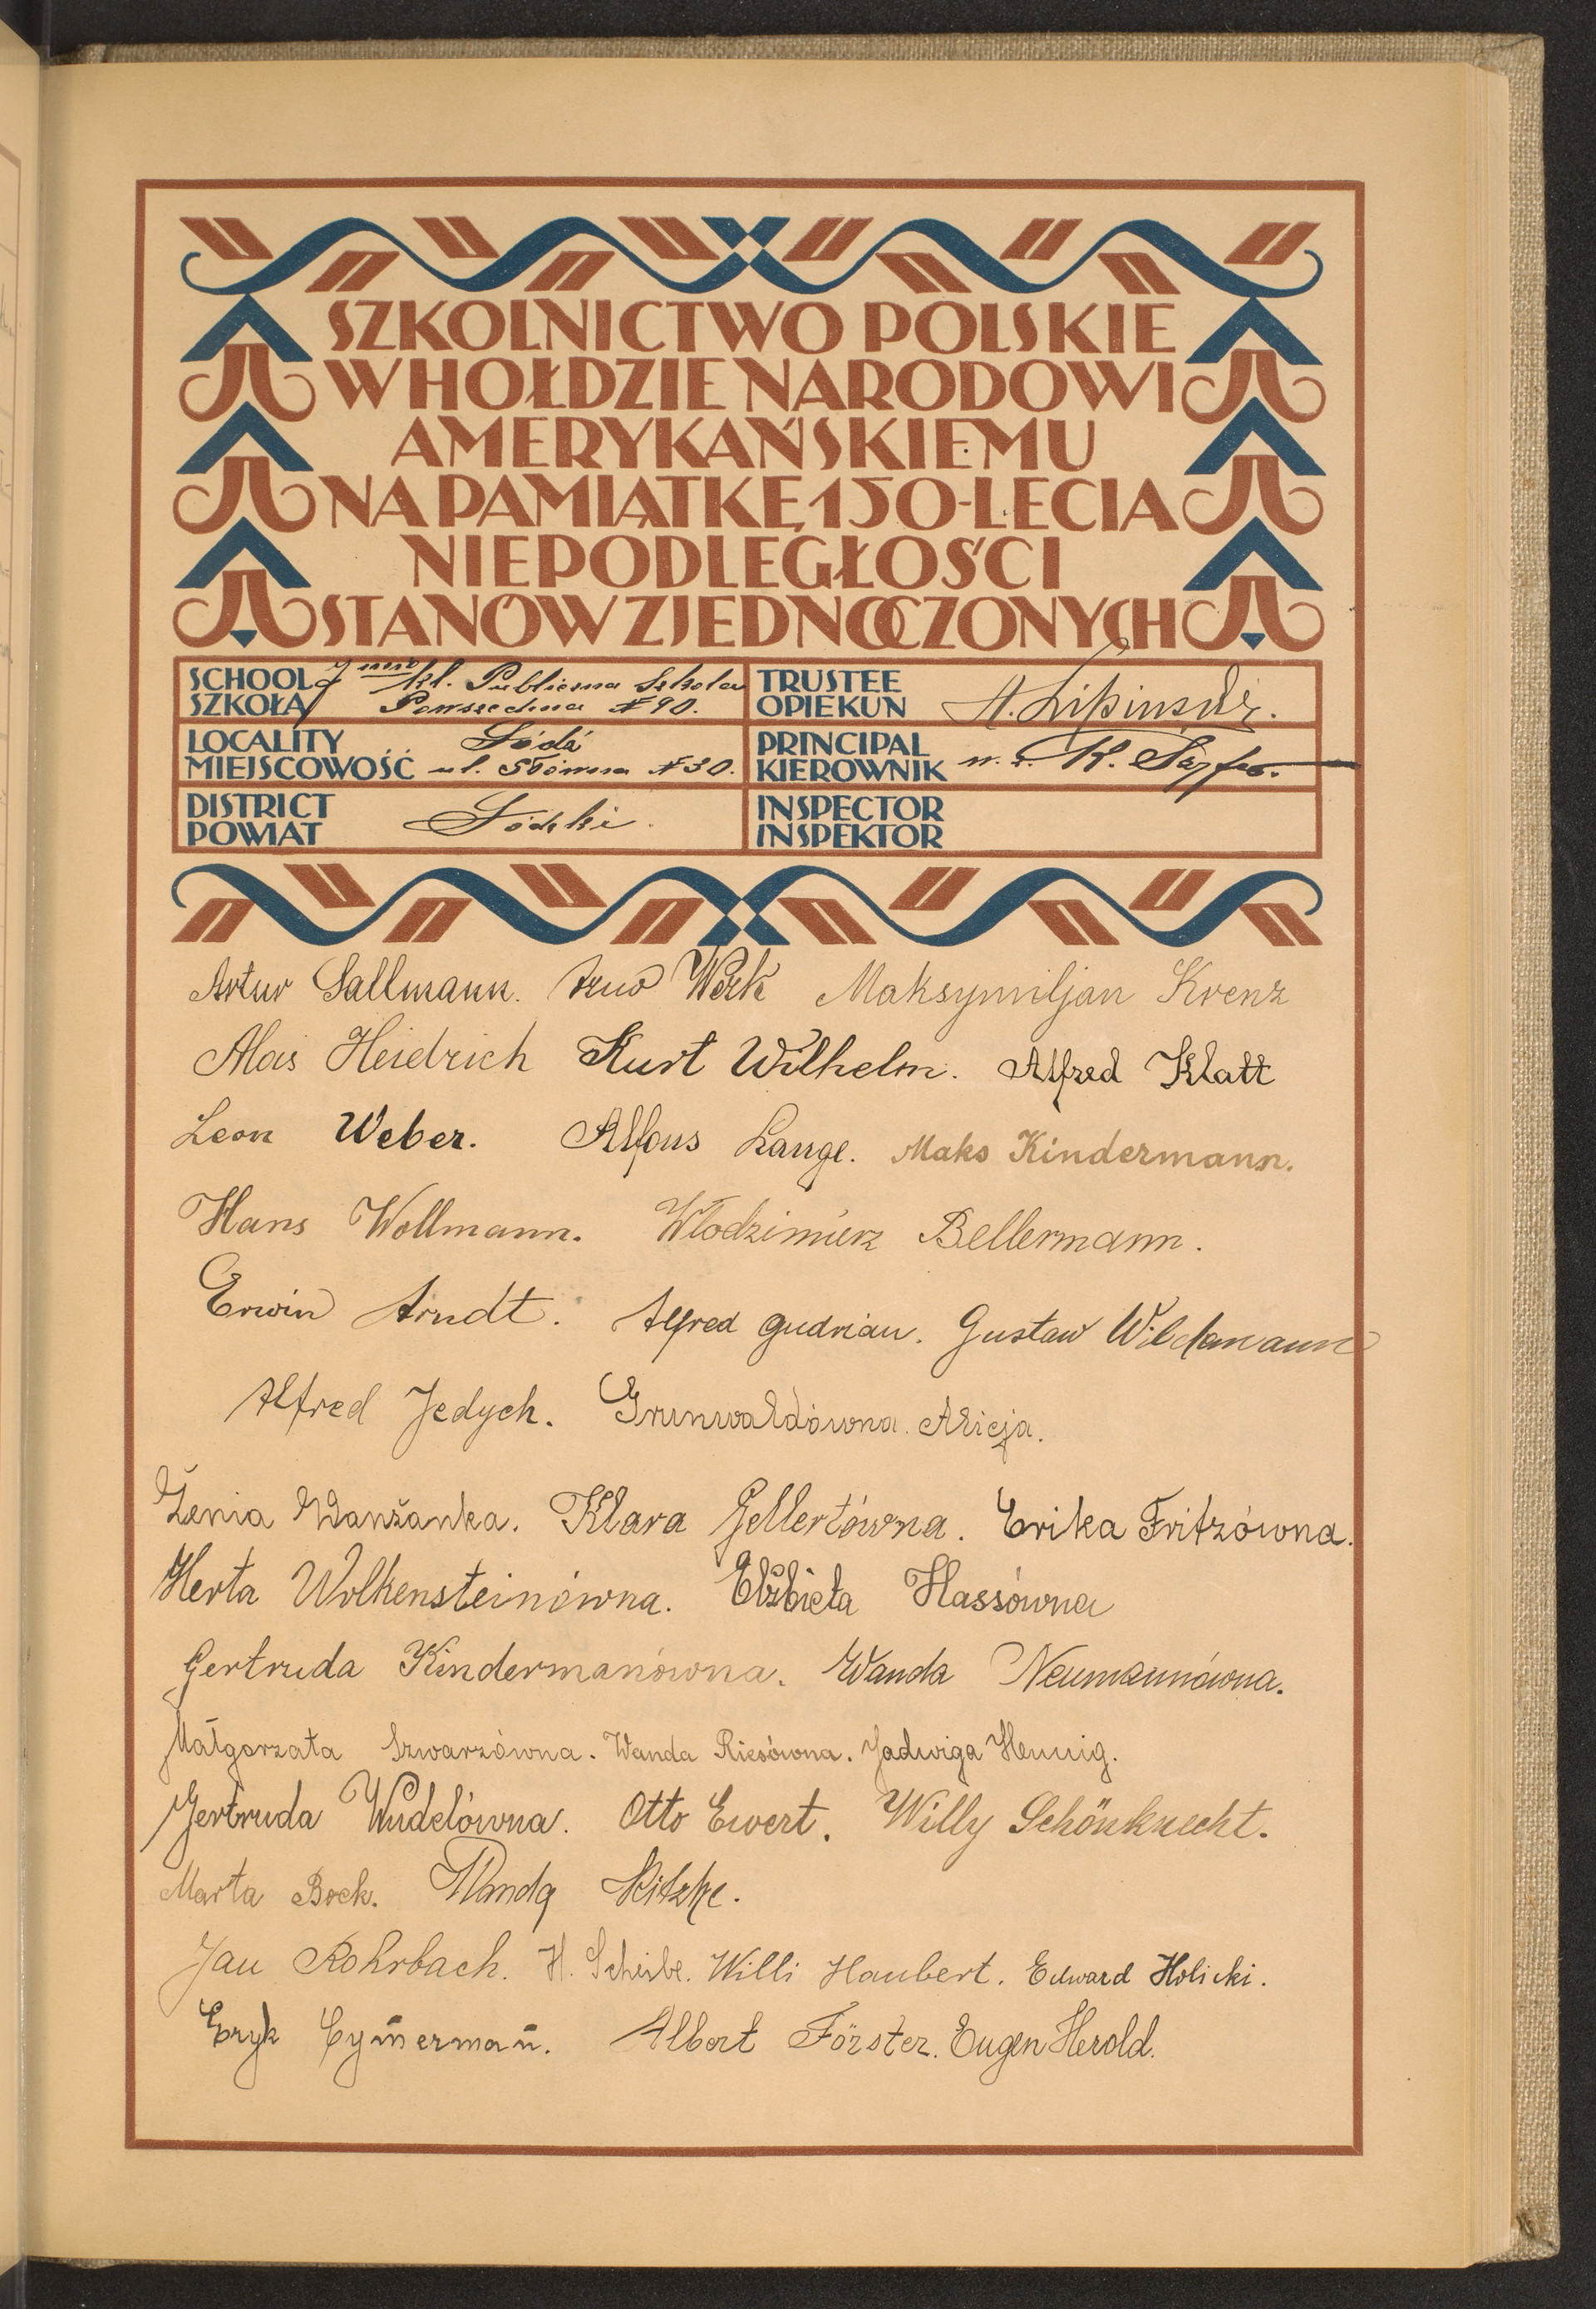 SZKOLNICTWO POLSKIE
W HOŁDZIE NARODOWI
AMERYKAŃSKIEMU
NA PAMIĄTKĘ 150-LECIA
NIEPODLEGŁOŚCI
STANÓW ZJEDNOCZONYCH
SCHOOL 7 mio kl. Publiczna Szkoła
SZKOŁA Powszechna № 90.
TRUSTEE
OPIEKUN A. Lipiński.
LOCALITY Łódź
MIEJSCOWOŚĆ ul. Główna № 30.
PRINCIPAL
KIEROWNIK K.
DISTRICT
POWIAT Łódzki.
INSPECTOR
INSPEKTOR
Artur Sallmann. Maksymiljan Krenz
Alois Heidrich Kurt Wilhelm. Alfred Klatt
Leon Weber. Alfons Lange. Maks Kindermann.
Hans Wollmann. Włodzimierz Bellermann.
Erwin Arndt. Alfred Gudrian. Gustaw Wildemann
Alfred Jedych. Grunwaldówna. Alicja.
Żenia Wanżanka. Klara Gellertówna. Erika Fritzówna.
Herta Wolkensteinówna. Elżbieta Hassówna
Gertruda Kindermanówna. Wanda Neumannówna.
Małgorzata Szwarzówna. Wanda Riesówna. Jadwiga Hennig.
Gertruda Wudelówna. Otto Ewert. Willy Schönknecht.
Marta Bock. Wanda
Jan Rohrbach. H. Scheibe. Willi Haubert. Edward Holicki.
Eryk Cym̄erman̄. Albert Förster. Eugen Herold.